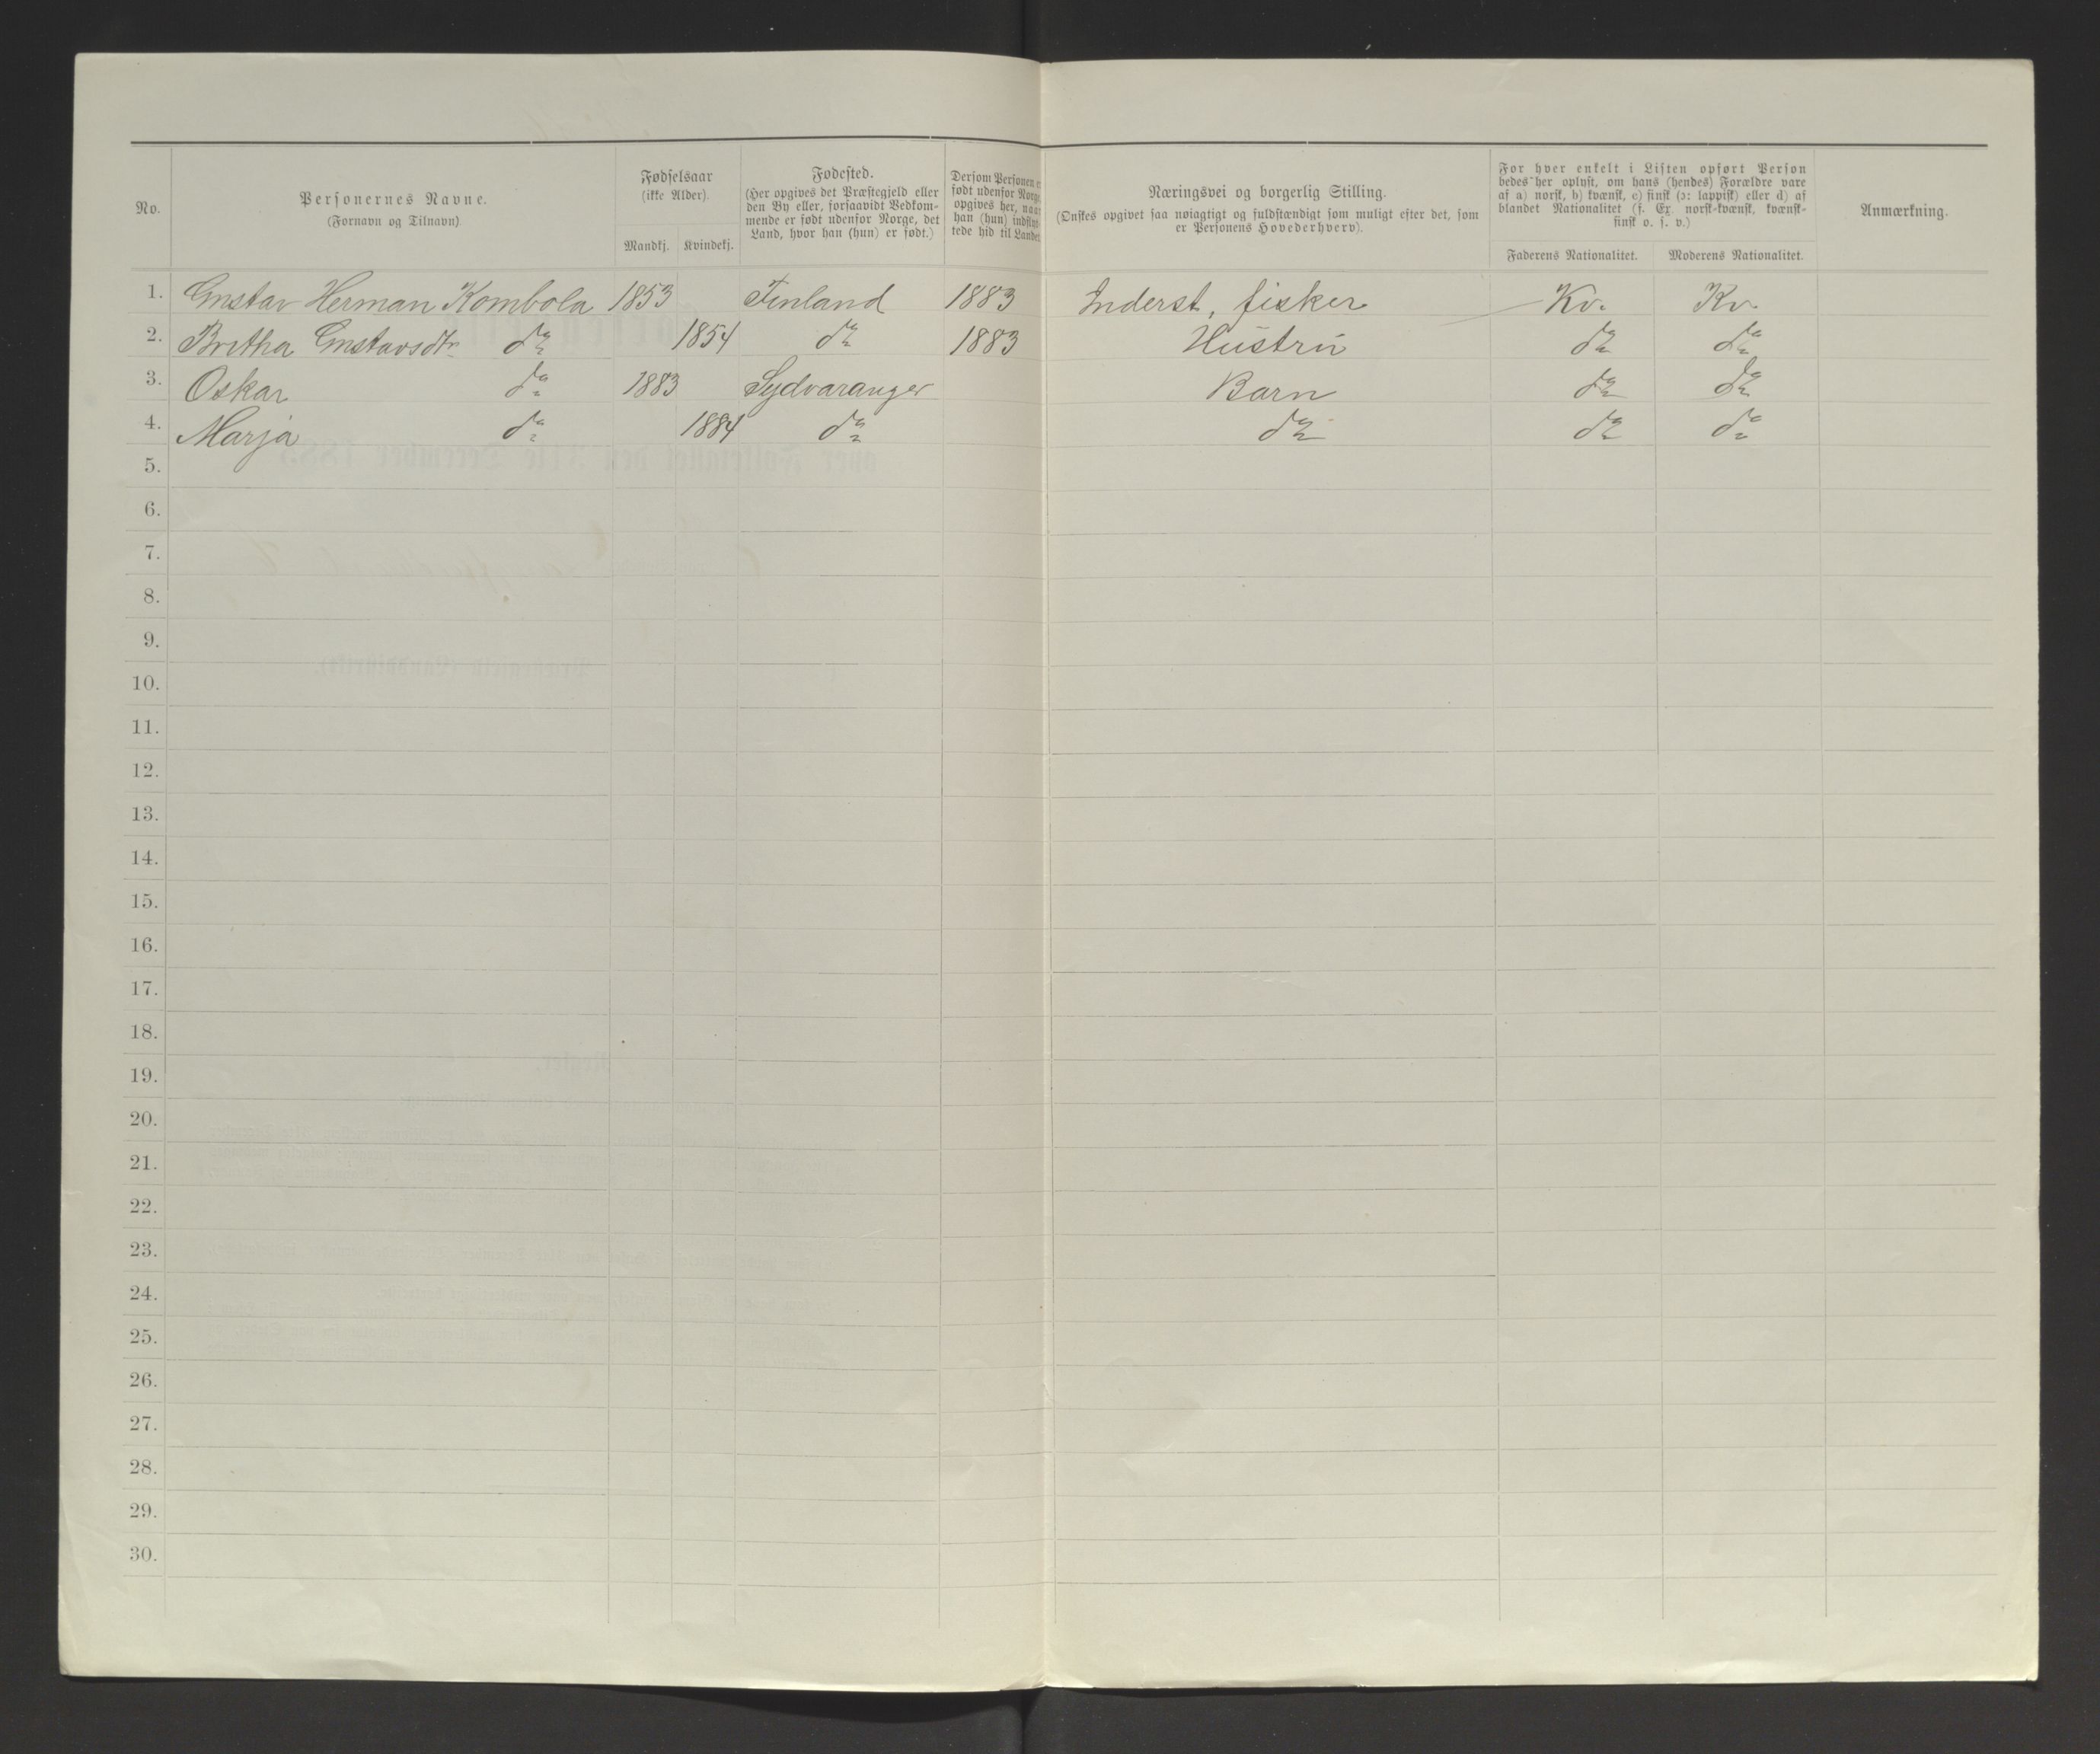 No.
Personernes Navne.
(Fornavn og Tilnavn).
Fødselsaar
(ikke Alder).
Mandkj. Kvindekj.
Fødested.
(Her opgives det Præstegjeld eller
den By eller, forsaavidt Vedkom-
mende er født udenfor Norge, det
Land, hvor han (hun) er født.)
Dersom Personen er
født udenfor Norge,
opgives her, naar
han (hun) indflyt-
tede hid til Landet.
Næringsvei og borgerlig Stilling.
(Ønskes opgivet saa nøiagtigt og fuldstændigt som muligt efter det, som
er Personens Hovederhverv).
For hver enkelt i Listen opført Person
bedes her oplyst, om hans (hendes) Forældre vare
af a) norsk, b) kvænsk, c) finsk (ɔ: lappisk) eller d) af
blandet Nationalitet (f. Ex. norsk-kvænsk, kvænsk-
finsk o. s. v.)
Faderens Nationalitet. Moderens Nationalitet.
Anmærkning.
1. Gustav Herman Kombola 1853 Finland 1883 Inderst, fisker Kv. Kv.
2. Britha Gustavsdtr do 1854 do 1883 Hustru do do
3. Oskar do 1883 Sydvaranger Barn do do
4. Marja do 1884 do do do do
5.
6.
7.
8.
9.
10.
11.
12.
13.
14.
15.
16.
17.
18.
19.
20.
21.
22.
23.
24.
25.
26.
27.
28.
29.
30.